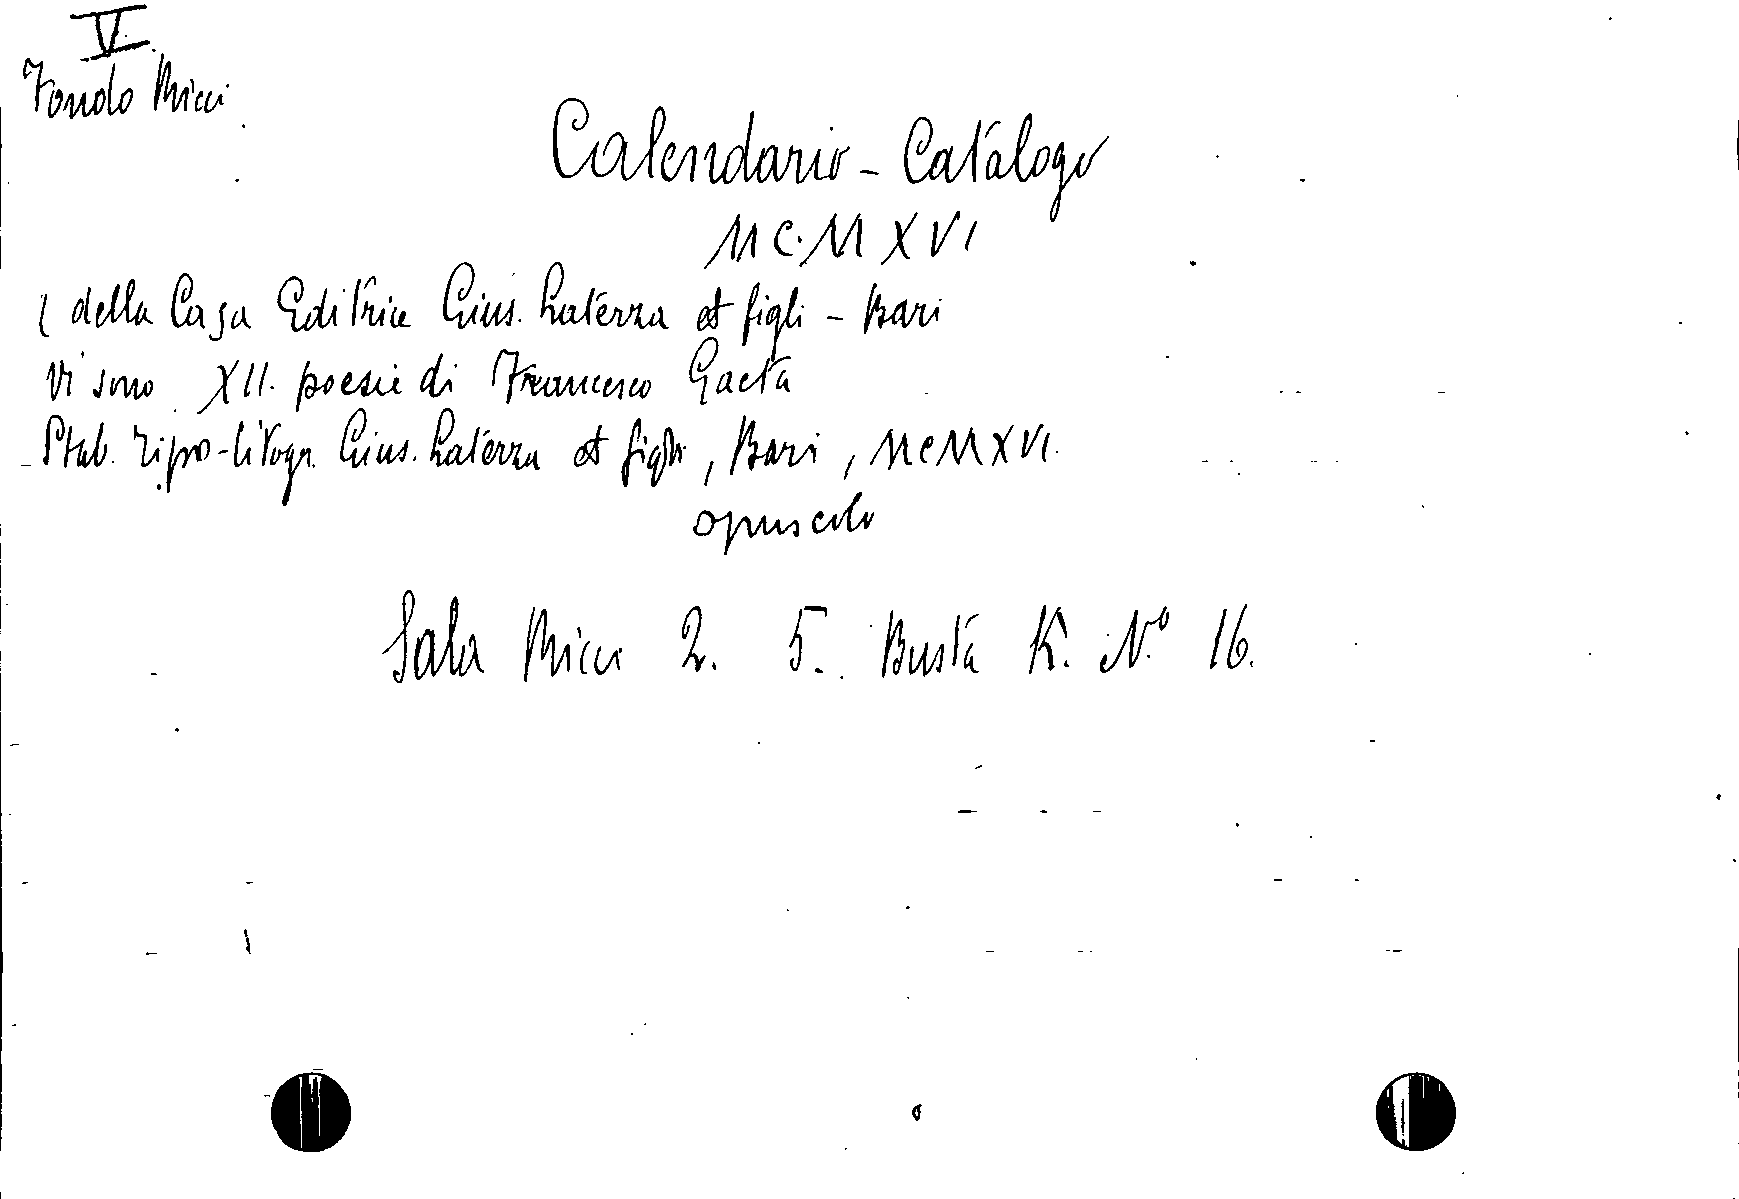 V
Fondo Ricci
Calendario - Catalogo
MCMXVI
( della Casa Editrice Gius. Laterza et figli - Bari
Vi sono XII. poesie di Francesco Gaeta
Stab. Tipo-litogr. Gius. Laterza et figli, Bari, MCMXVI.
opuscolo
Sala Ricci 2. 5. Busta K. N.º 16.